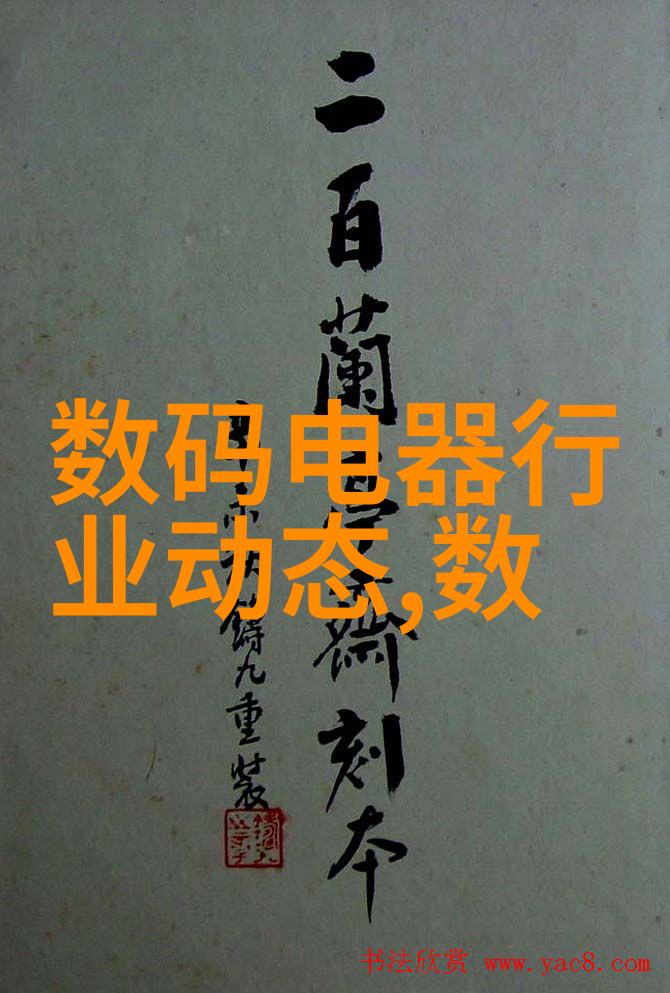 二百蘭亭齋刻本
鑄九重裝
数码电器行
业动态,数
书法欣赏 www.yac8.com